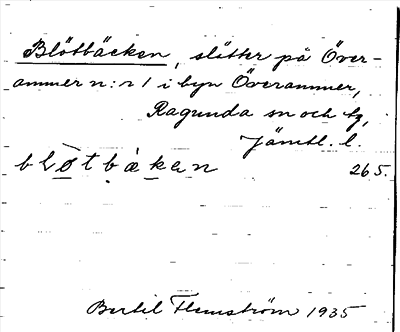 Blötbäcken, slåtter på Över-
ammer n:r 1 i byn Överammer,
Ragunda sn och tg,
Jämtl. l.
bløtbàkɐn 265.
Bertil Flemström 1935